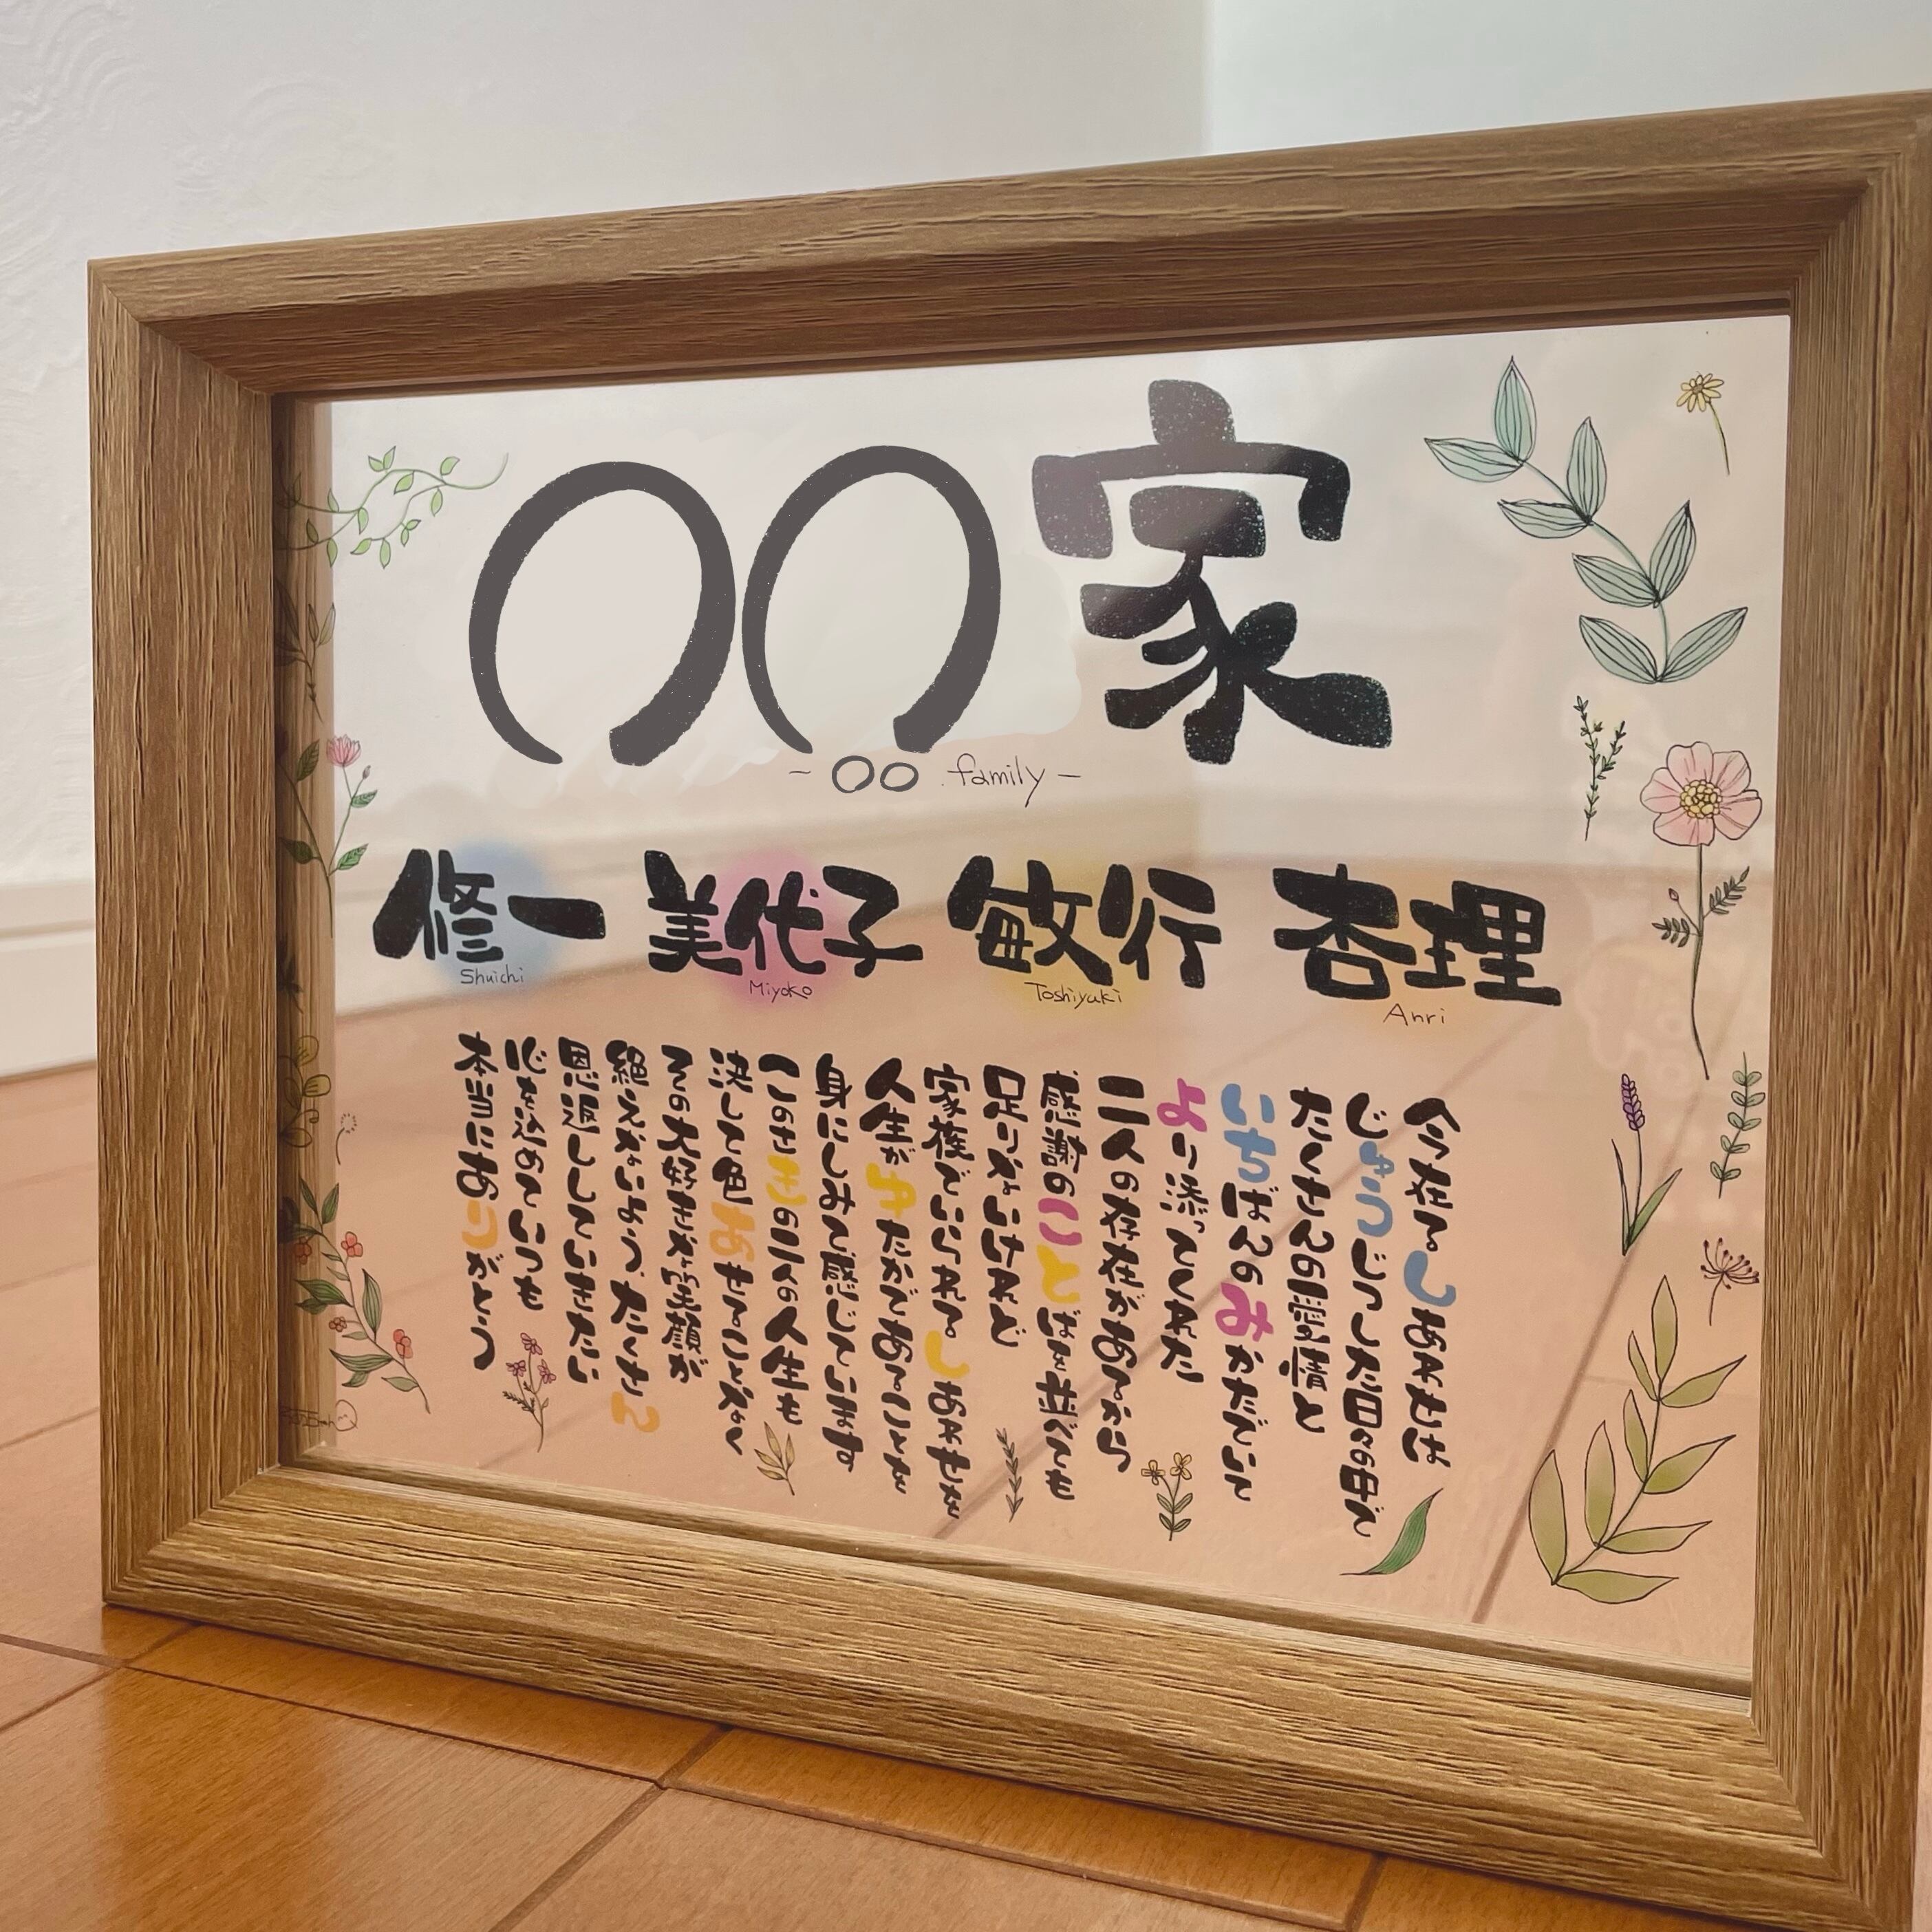 〇〇家
- 〇〇 family -
修一 美代子 敏行 杏理
Shuichi Miyoko Toshiyuki Anri
今在る しあわせは
じゅうじつした日々の中で
たくさんの愛情と
いちばんのみかたでいて
より添ってくれた
二人の存在があるから
感謝のことばを並べても
足りないけれど
家族でいられる しあわせを
人生がゆたかであることを
身にしみて感じています
このさきの二人の人生も
決して色あせることなく
その大好きな笑顔が
絶えないよう、たくさん
恩返ししていきたい
心を込めて いつも
本当にありがとう